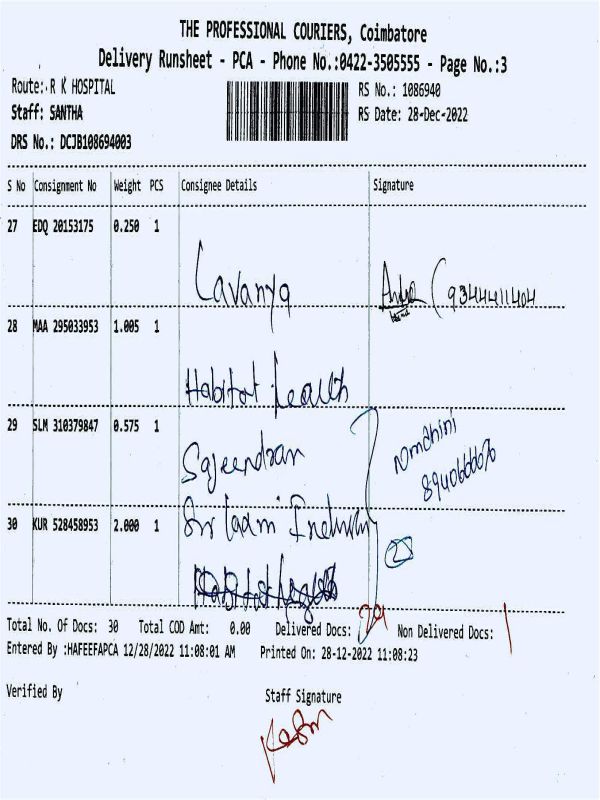 THE PROFESSIONAL COURIERS, Coimbatore
Delivery Runsheet - PCA - Phone No.:0422-3505555 - Page No.:3
Route: R K HOSPITAL
RS No.: 1086940
Staff: SANTHA
RS Date: 28-Dec-2022
DRS No.: DCJB108694003
S No Consignment No Weight PCS Consignee Details Signature
27 EDQ 20153175 0.250 1
Lavanya 9344411404
28 MAA 295033953 1.005 1
Habitat Health
29 SLM 310379847 0.575 1
Sajeendran
8940666676
30 KUR 528458953 2.000 1
Sri laxmi
2
Total No. Of Docs: 30 Total COD Amt: 0.00 Delivered Docs: 29 Non Delivered Docs: 1
Entered By :HAFEEFAPCA 12/28/2022 11:08:01 AM Printed On: 28-12-2022 11:08:23
Verified By Staff Signature